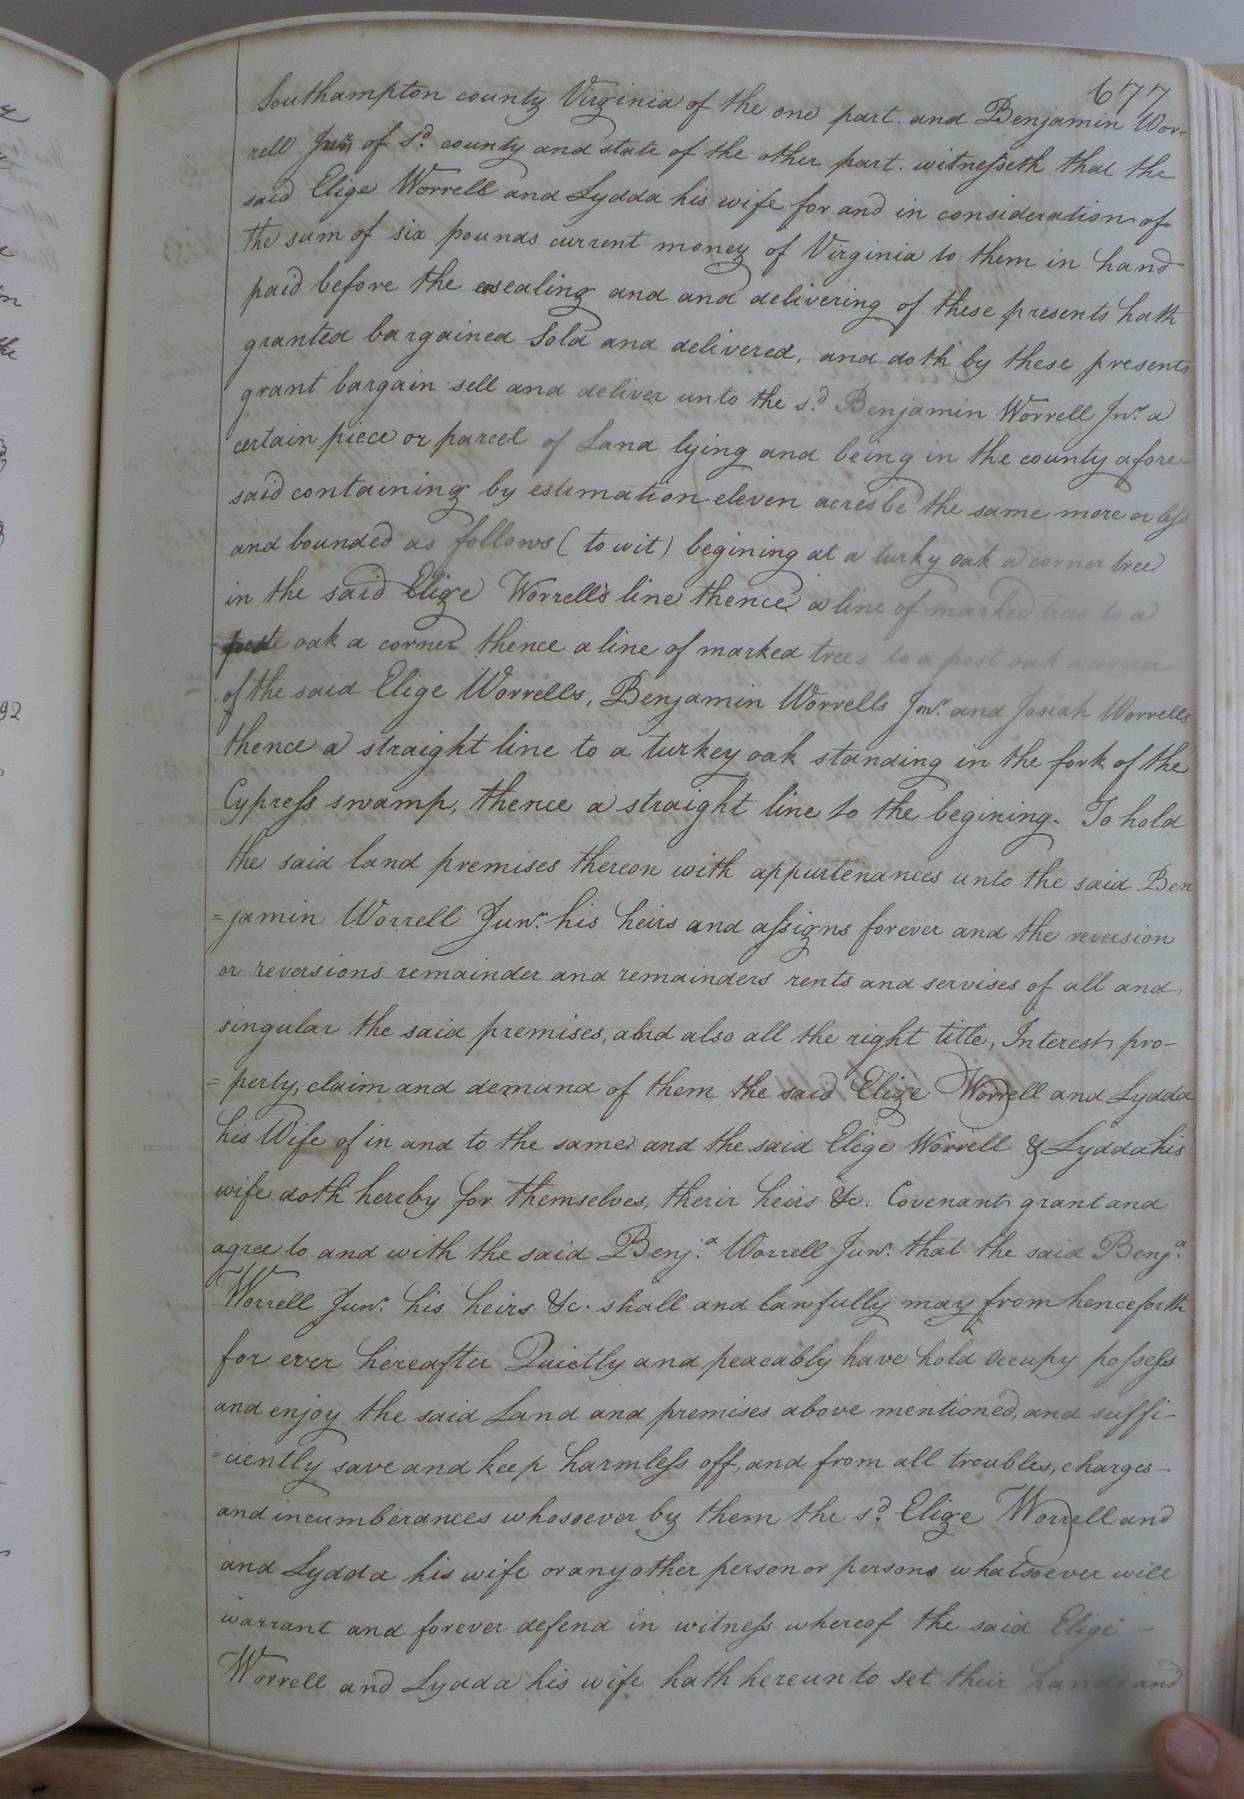 677
Southampton county Virginia of the one part. and Benjamin Wor-
rell Junr of Sd. county and state of the other part. witnesseth that the
said Elige Worrell and Lydda his wife for and in consideration of
the sum of six pounds current money of Virginia to them in hand
paid before the ensealing and and delivering of these presents hath
granted bargained Sold and delivered, and doth by these presents
grant bargain sell and deliver unto the sd. Benjamin Worrell Jnr. a
certain piece or parcel of Land lying and being in the county afore-
said containing by estimation eleven acres be the same more or less
and bounded as follows (to wit) begining at a turky oak a corner tree
in the said Elige Worrell's line thence a line of marked trees to a
oak a corner thence a line of marked trees to a post oak a corner
of the said Elige Worrells, Benjamin Worrells Jnr. and Josiah Worrells
thence a straight line to a turkey oak standing in the fork of the
Cypress swamp, thence a straight line to the begining. To hold
the said land premises thereon with appurtenances unto the said Ben
=jamin Worrell Junr. his heirs and assigns forever and the reversion
or reversions remainder and remainders rents and servises of all and
singular the said premises, and also all the right title, Interest, pro-
=perty, claim and demand of them the said Elige Worrell and Lydda
his Wife of in and to the same and the said Elige Worrell & Lydda his
wife doth hereby for themselves, therir heirs &c. Covenant grant and
agree to and with the said Benja. Worrell Junr. that the said Benja.
Worrell Junr. his heirs &c. shall and lawfully may from henceforth
for ever hereafter Quietly and peaceably have hold occupy possess
and enjoy the said Land and premises above mentioned, and suffi-
=ciently save and keep harmless off, and from all troubles, charges
and incumberances whosoever by them the sd. Elige Worrell and
and Lydda his wife or any other person or persons whatsoever will
warrant and forever defend in witness whereof the said Elige -
Worrell and Lydda his wife hath hereunto set their hands and
92